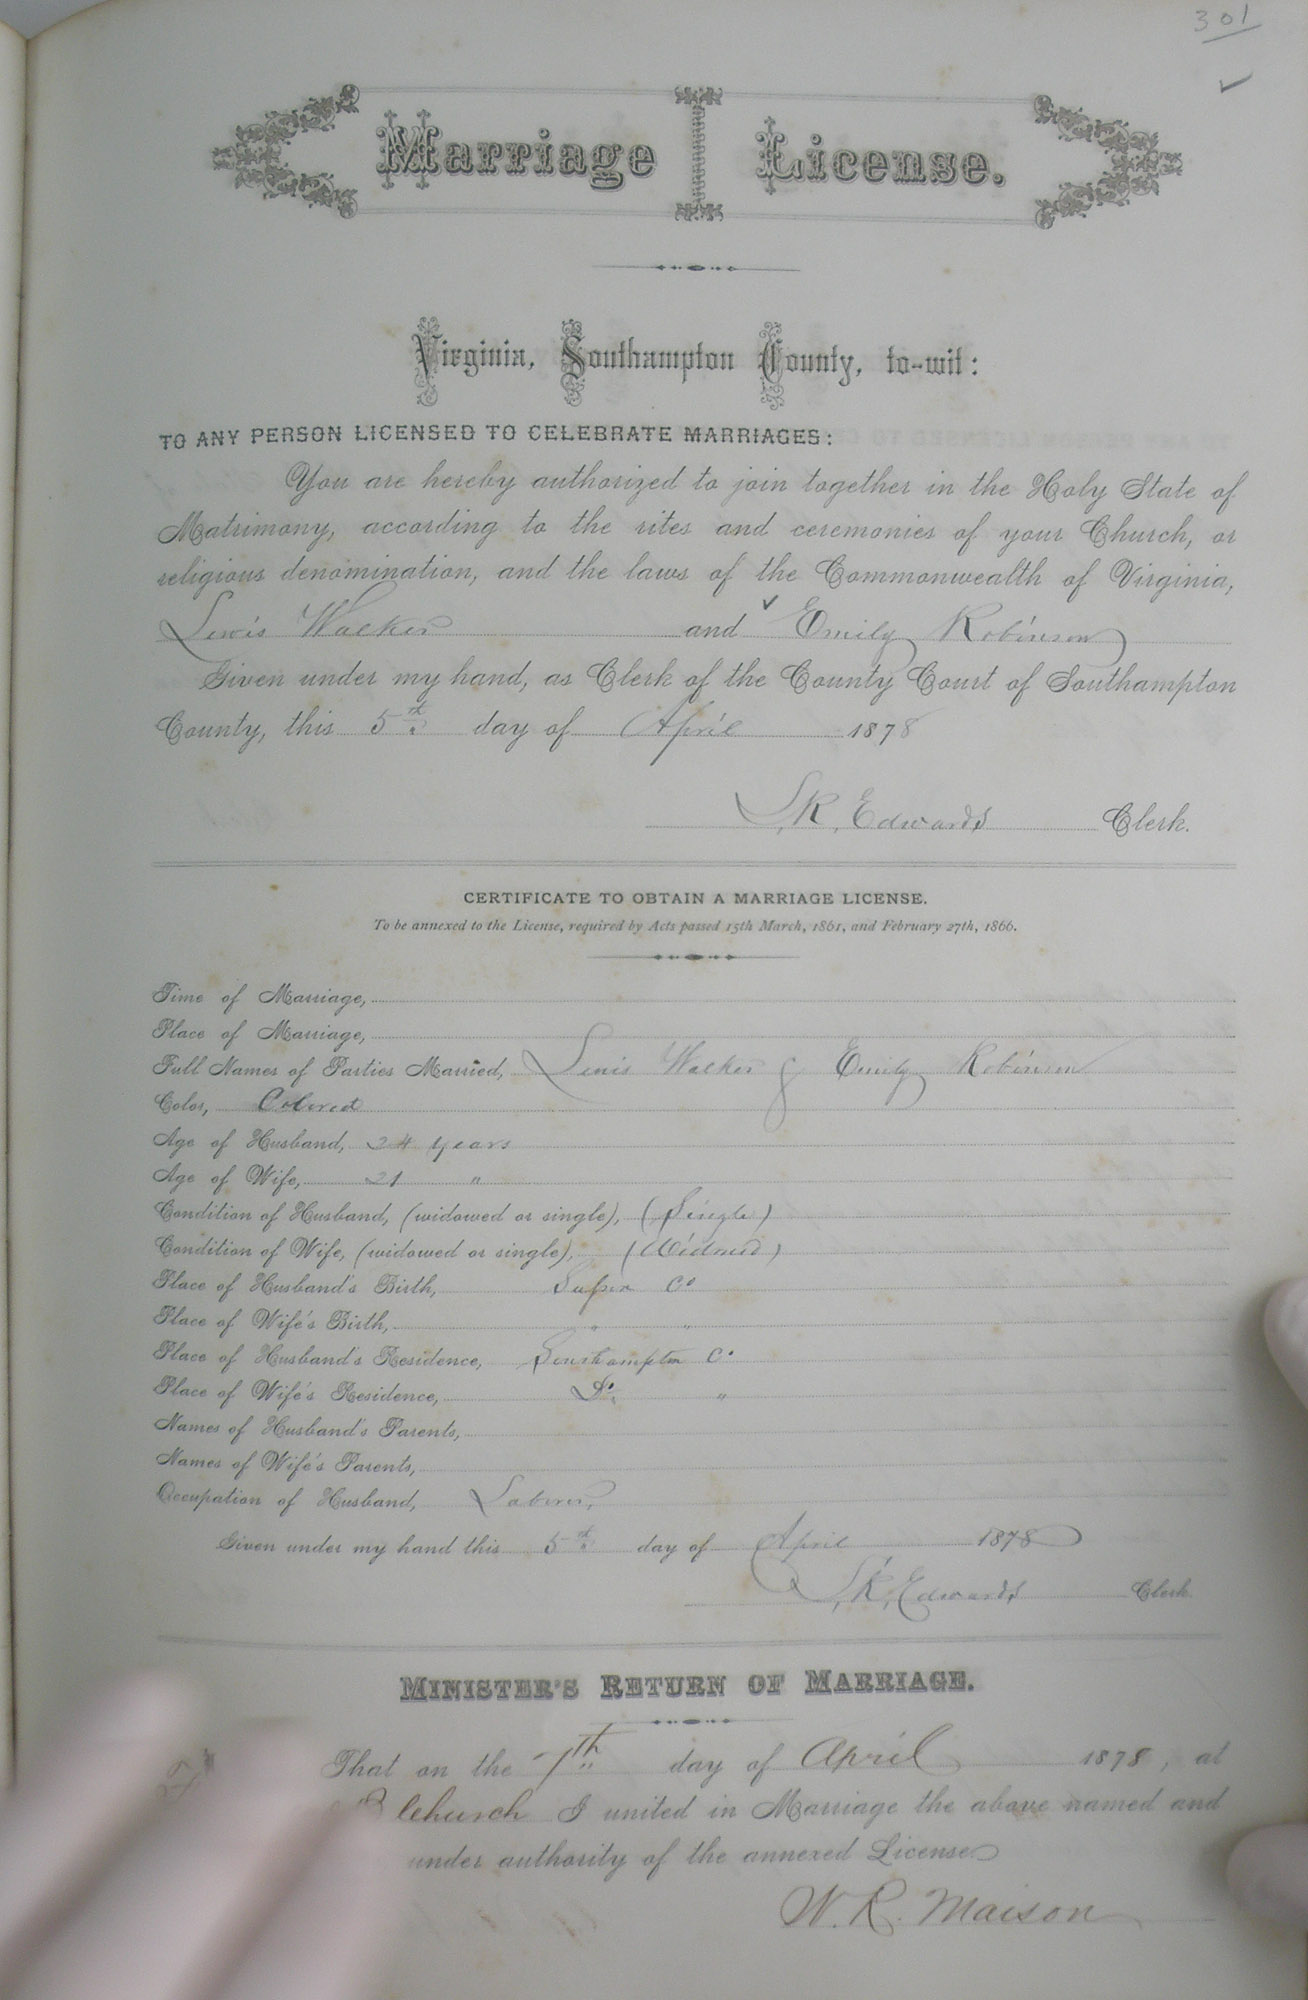 301
Marriage License.
Virginia, Southampton County, to-wit:
TO ANY PERSON LICENSED TO CELEBRATE MARRIAGES:
You are hereby authorized to join together in the Holy State of
Matrimony, according to the rites and ceremonies of your Church, or
religious denomination, and the laws of the Commonwealth of Virginia,
Lewis Walker and Emily Robinson
Given under my hand, as Clerk of the County Court of Southampton
County, this 5th day of April 1878
S.K. Edwards Clerk.
CERTIFICATE TO OBTAIN A MARRIAGE LICENSE.
To be annexed to the License, required by Acts passed 15th March, 1861, and February 27th, 1866.
Time of Marriage,
Place of Marriage,
Full Names of Parties Married, Lewis Walker & Emily Robinson
Color, Colored
Age of Husband, 24 years
Age of Wife, 21 "
Condition of Husband, (widowed or single), (Single)
Condition of Wife, (widowed or single), (Widowed)
Place of Husband's Birth, Co
Place of Wife's Birth, " "
Place of Husband's Residence, Southampton Co
Place of Wife's Residence, Do "
Names of Husband's Parents,
Names of Wife's Parents,
Occupation of Husband, Laborer,
Given under my hand this 5th day of April 1878
S.K. Edwards Clerk
MINISTER'S RETURN OF MARRIAGE.
That on the 7th day of April 1878, at
church I united in Marriage the above named and
under authority of the annexed License
W. R. Maison